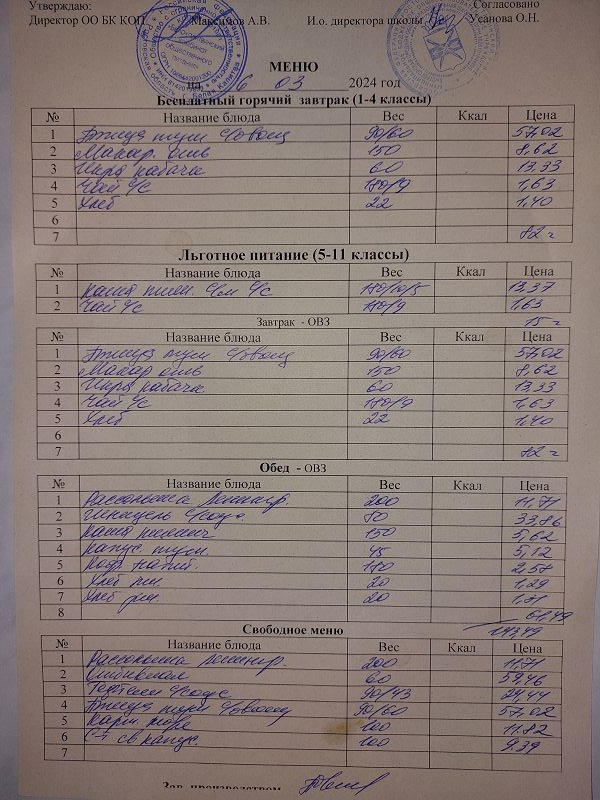 Утверждаю: Согласовано
Директор ОО БК КОП Максимов А.В. И.о. директора школы Усанова О.Н.
МЕНЮ
на 6 03 2024 год
Бесплатный горячий завтрак (1-4 классы)
№ Название блюда Вес Ккал Цена
1 Птица туш с овощ 90/60 57,02
2 Макар. отв 150 8,62
3 Икра кабачк 60 13,33
4 Чай с/с 180/9 1,63
5 Хлеб 22 1,40
6
7 82 =
Льготное питание (5-11 классы)
№ Название блюда Вес Ккал Цена
1 Каша пшен. с/м с/с 180/10/5 13,37
2 Чай с/с 180/9 1,63
Завтрак - ОВЗ 15 =
№ Название блюда Вес Ккал Цена
1 Птица туш с овощ 90/60 57,02
2 Макар отв 150 8,62
3 Икра кабачк 60 13,33
4 Чай с/с 180/9 1,63
5 Хлеб 22 1,40
6
7 82 =
Обед - ОВЗ
№ Название блюда Вес Ккал Цена
1 Рассольник ленингр. 200 11,71
2 80 33,86
3 Каша 150 5,62
4 Капус. туш. 45 5,12
5 180 2,57
6 Хлеб пш. 20 1,29
7 Хлеб рж. 20 1,31
8 61,49
143,49
Свободное меню
№ Название блюда Вес Ккал Цена
1 Рассольник ленингр. 200 11,71
2 60 59,46
3 Тефтели 90/43 24,44
4 Птица туш с овощ 90/60 57,02
5 Карт. пюре 100 11,82
6 С-т св капус. 100 9,39
7
Зав. производством